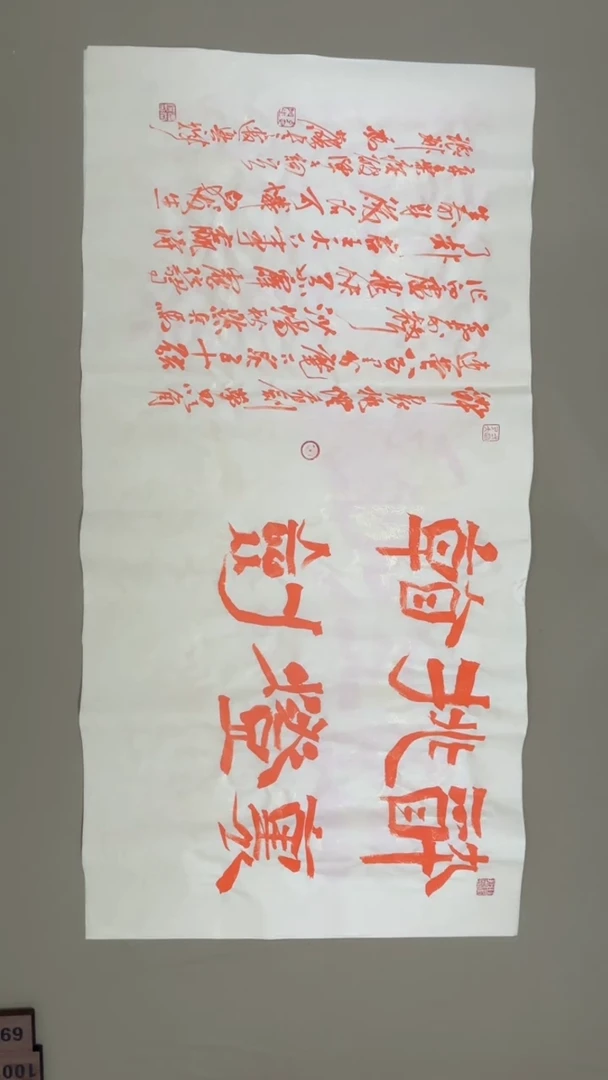 醉裏
挑燈
看劍
醉裏挑燈看劍夢回吹角
連營八百里分麾下炙五十弦
翻塞外聲沙場秋點兵馬
作的盧飛快弓如霹靂弦驚
了却君王天下事贏得
生前身後名可憐白髮生
辛棄疾
69
100